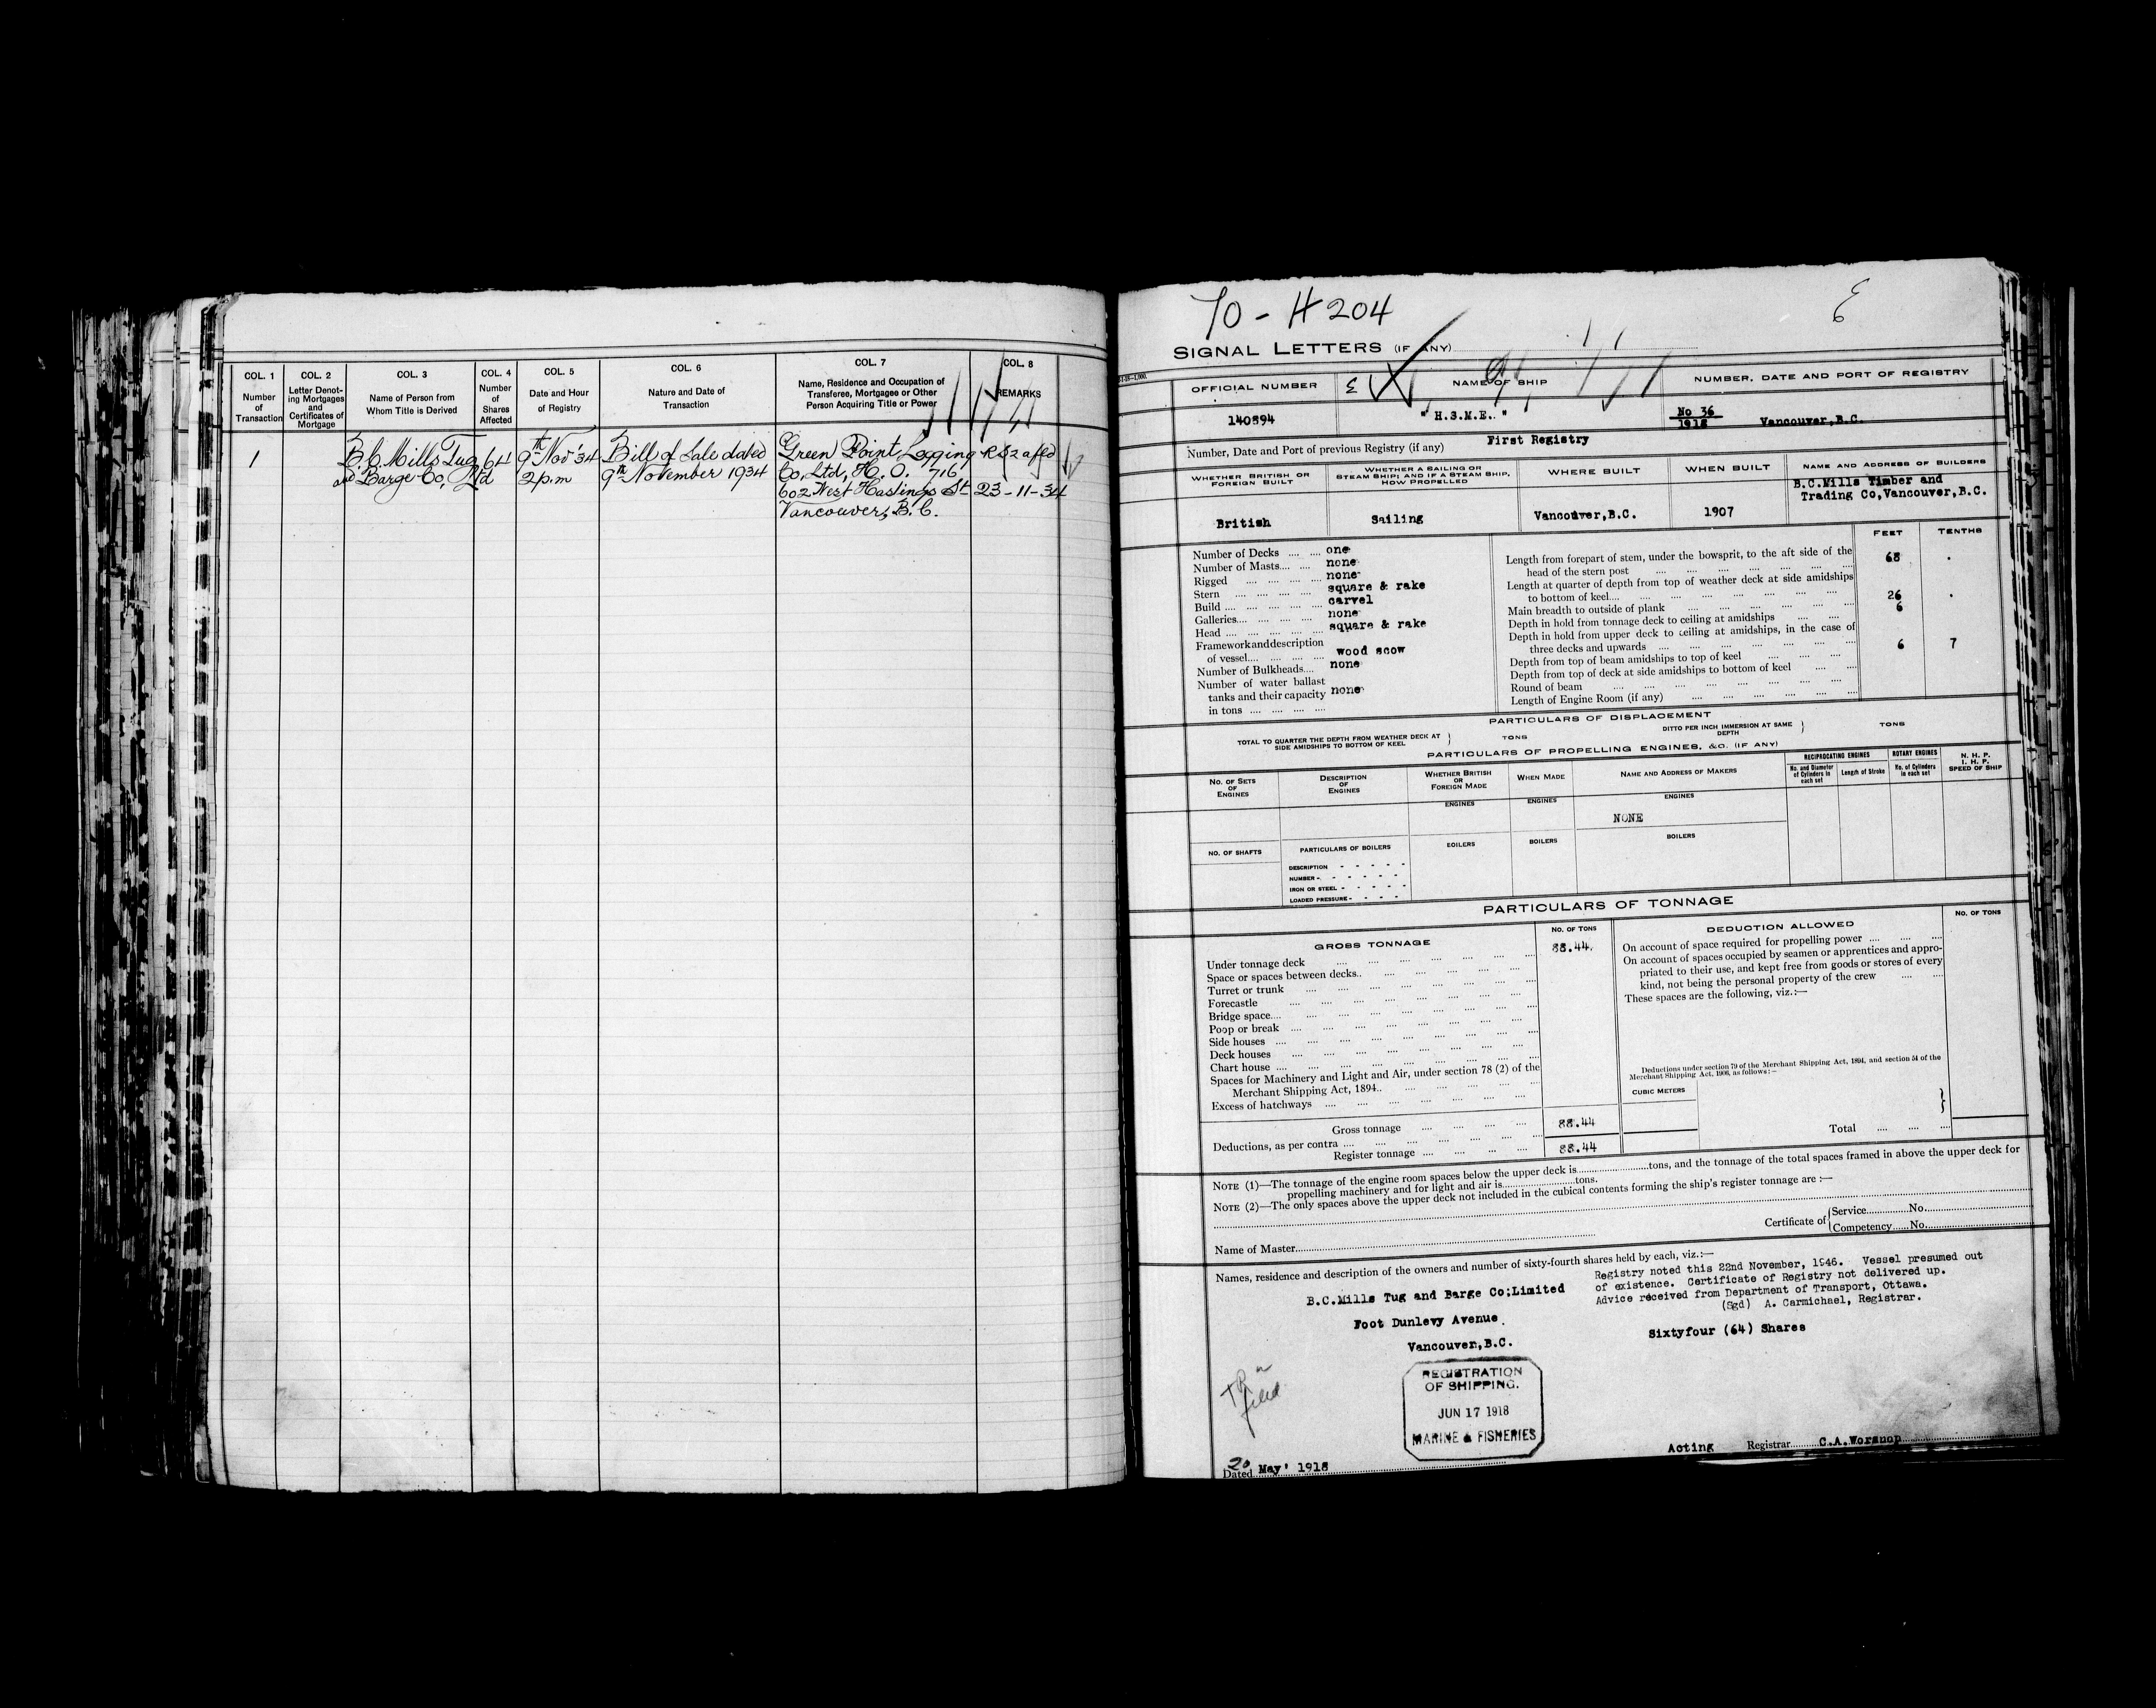 COL. 1
Number
of
Transaction
COL. 2
Letter Denot-
ing Mortgages
and
Certificates of
Mortgage
COL. 3
Name of Person from
Whom Title is Derived
COL. 4
Number
of
Shares
Affected
COL. 5
Date and Hour
of Registry
COL. 6
Nature and Date of
Transaction
COL. 7
Name, Residence and Occupation of
Transferee, Mortgagee or Other
Person Acquiring Title or Power
COL. 8
REMARKS
1
B.C. Mills Tug
and Barge Co, Ltd
64
9th Nov '34
2 p.m
Bill of Sale dated
9th November 1934
Green Point Logging
Co, Ltd, H. O. 716
602 West Hastings St
Vancouver, B.C.
23-11-34
70 - H 204
SIGNAL LETTERS (IF ANY)
OFFICIAL NUMBER
140894
NAME OF SHIP
" H.S.M.E. "
NUMBER, DATE AND PORT OF REGISTRY
No 36
1918
Vancouver,B.C.
Number, Date and Port of previous Registry (if any)
First Registry
WHETHER BRITISH OR
FOREIGN BUILT
WHETHER A SAILING OR
STEAM SHIP; AND IF A STEAM SHIP,
HOW PROPELLED
WHERE BUILT
WHEN BUILT
NAME AND ADDRESS OF BUILDERS
British
Sailing
Vancouver,B.C.
1907
B.C.Mills Timber and
Trading Co,Vancouver,B.C.
Number of Decks .... .... one
Number of Masts.... .... none
Rigged .... .... .... .... none
Stern .... .... .... .... square & rake
Build .... .... .... .... .... carvel
Galleries.... .... .... .... none
Head .... .... .... .... .... square & rake
Framework and description
of vessel.... .... .... .... wood scow
Number of Bulkheads.... none
Number of water ballast
tanks and their capacity none
in tons .... .... .... ....
FEET TENTHS
Length from forepart of stem, under the bowsprit, to the aft side of the
head of the stern post 68 .
Length at quarter of depth from top of weather deck at side amidships
to bottom of keel....
Main breadth to outside of plank 26 .
Depth in hold from tonnage deck to ceiling at amidships 6
Depth in hold from upper deck to ceiling at amidships, in the case of
three decks and upwards
Depth from top of beam amidships to top of keel 6 7
Depth from top of deck at side amidships to bottom of keel
Round of beam
Length of Engine Room (if any)
PARTICULARS OF DISPLACEMENT
TOTAL TO QUARTER THE DEPTH FROM WEATHER DECK AT
SIDE AMIDSHIPS TO BOTTOM OF KEEL
TONS
DITTO PER INCH IMMERSION AT SAME
DEPTH
TONS
PARTICULARS OF PROPELLING ENGINES, &C. (IF ANY)
NO. OF SETS
OF
ENGINES
DESCRIPTION
OF
ENGINES
WHETHER BRITISH
OR
FOREIGN MADE
WHEN MADE
NAME AND ADDRESS OF MAKERS
RECIPROCATING ENGINES
No. and Diameter
of Cylinders in
each set
Length of Stroke
ROTARY ENGINES
No. of Cylinders
in each set
N. H. P.
I. H. P.
SPEED OF SHIP
ENGINES
ENGINES
ENGINES
NONE
NO. OF SHAFTS
PARTICULARS OF BOILERS
BOILERS
BOILERS
BOILERS
DESCRIPTION
NUMBER
IRON OR STEEL
LOADED PRESSURE
PARTICULARS OF TONNAGE
GROSS TONNAGE
NO. OF TONS
Under tonnage deck 88.44
Space or spaces between decks..
Turret or trunk
Forecastle
Bridge space....
Poop or break
Side houses
Deck houses
Chart house
Spaces for Machinery and Light and Air, under section 78 (2) of the
Merchant Shipping Act, 1894..
Excess of hatchways
Gross tonnage 88.44
Deductions, as per contra
Register tonnage 88.44
DEDUCTION ALLOWED
NO. OF TONS
On account of space required for propelling power
On account of spaces occupied by seamen or apprentices and appro-
priated to their use, and kept free from goods or stores of every
kind, not being the personal property of the crew
These spaces are the following, viz.:—
Deductions under section 79 of the Merchant Shipping Act, 1894, and section 54 of the
Merchant Shipping Act, 1906, as follows:—
CUBIC METERS
Total
NOTE (1)—The tonnage of the engine room spaces below the upper deck is..........tons, and the tonnage of the total spaces framed in above the upper deck for
propelling machinery and for light and air is..........tons.
NOTE (2)—The only spaces above the upper deck not included in the cubical contents forming the ship's register tonnage are :—
Certificate of
Service..........No..........
Competency......No..........
Name of Master..........
Names, residence and description of the owners and number of sixty-fourth shares held by each, viz.:—
B.C.Mills Tug and Barge Co;Limited
Foot Dunlevy Avenue
Vancouver,B.C.
Registry noted this 22nd November, 1946. Vessel presumed out
of existence. Certificate of Registry not delivered up.
Advice received from Department of Transport, Ottawa.
(Sgd) A. Carmichael, Registrar.
Sixtyfour (64) Shares
REGISTRATION
OF SHIPPING.
JUN 17 1918
MARINE & FISHERIES
filed
Dated 20 May' 1918
Acting Registrar C.A.Worsnop